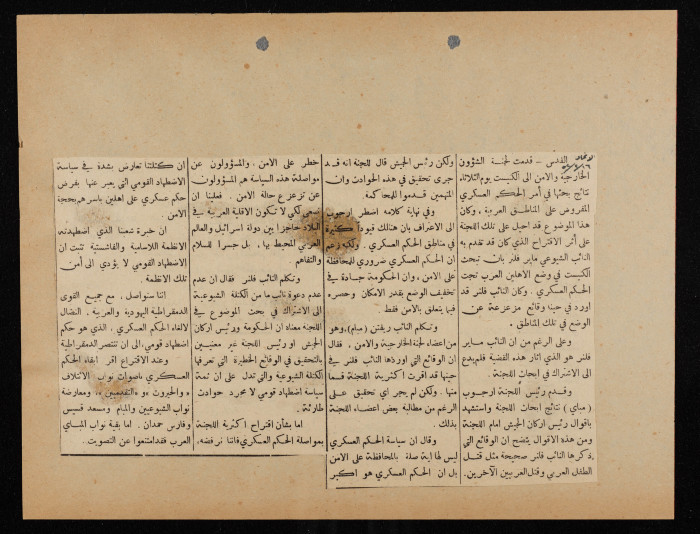 القدس – قدمت لجنة الشؤون
الخارجية والامن الى الكنيست يوم الثلاثاء
نتائج بحثها في أمر الحكم العسكري
المفروض على المناطق العربية، وكان
هذا الموضوع قد احيل على تلك اللجنة
على أثر الاقتراح الذي كان قد تقدم به
النائب الشيوعي ماير فلنر بان تبحث
الكنيست في وضع الاهلين العرب تحت
الحكم العسكري. وكان النائب فلنر قد
اورد في حينه وقائع مزعزعة عن
الوضع في تلك المناطق.
وعلى الرغم من ان النائب ماير
فلنر هو الذي أثار هذه القضية فلم يدع
الى الاشتراك في ابحاث اللجنة.
وقدم رئيس اللجنة ارجوب
(مباي) نتائج ابحاث اللجنة واستشهد
باقوال رئيس اركان الجيش امام اللجنة
ومن هذه الاقوال يتضح ان الوقائع التي
ذكرها النائب فلنر صحيحة مثل قتل
الطفل العربي وقتل العربيين الآخرين.
ولكن رئس الجيش قال للجنة انه قد
جرى تحقيق في هذه الحوادث وان
المتهمين قدموا للمحاكمة.
وفي نهاية كلامه اضطر ارجوب
الى الاعتراف بان هنالك قيودا كثيرة
في مناطق الحكم العسكري. ولكنه زعم
ان الحكم العسكري ضروري للمحافظة
على الامن، وان الحكومة جادة في
تخفيف الوضع بقدر الامكان وحصره
فيما يتعلق بالامن فقط.
وتكلم النائب ريفتن (مبام)، وهو
من اعضاء لجنة الخارجية والامن، فقال
ان الوقائع التي اوردها النائب فلنر في
حينها قد اقرت اكثرية اللجنة قسما
منها. ولكن لم يجر اي تحقيق على
الرغم من مطالبة بعض اعضاء اللجنة
بذلك.
وقال ان سياسة الحكم العسكري
ليس لها اية صلة بالمحافظة على الامن
بل ان الحكم العسكري هو اكبر
خطر على الامن، والمسؤولون عن
مواصلة هذه السياسة هم المسؤولون
عن تزعزع حالة الامن. فعلينا ان
نسعى لكي لا تكون الاقلية العربية في
البلاد حاجزا بين دولة اسرائيل والعالم
العربي المحيط بها، بل جسرا للسلام
والتفاهم
وتكلم النائب فلنر فقال ان عدم
عدم دعوة نائب ما من الكتلة الشيوعية
الى الاشتراك في بحث الموضوع في
اللجنة معناه ان الحكومة ورئيس اركان
الجيش او رئيس اللجنة غير معنيين
بالتحقيق في الوقائع الخطيرة التي تعرفها
الكتلة الشيوعية والتي تدل على ان ثمة
سياسة اضطهاد قومي لا مجرد حوادث
طارئة.
اما بشأن اقتراح اكثرية اللجنة
بمواصلة الحكم العسكري فاننا نرفضه،
ان كتلتنا تعارض بشدة في سياسة
الاضطهاد القومي التي يعبر عنها بفرض
حكم عسكري على اهلين باسرهم بحجة
الامن.
ان خبرة شعبنا الذي اضطهدته
الانظمة اللاسامية والفاشستية تثبت ان
الاضطهاد القومي لا يؤدي الى أمن
تلك الانظمة.
اننا سنواصل، مع جميع القوى
الدمقراطية اليهودية والعربية، النضال
لالغاء الحكم العسكري، الذي هو حكم
اضطهاد قومي، الى ان تنتصر الدمقراطية
وعند الاقتراع اقر ابقاء الحكم
العسكري باصوات نواب الائتلاف
و«الحيروت» و«التقدميين»، ومعارضة
نواب الشيوعيين والمبام ومسعد قسيس
وفارس حمدان. اما بقية نواب المباي
العرب فقد امتنعوا عن التصويت.